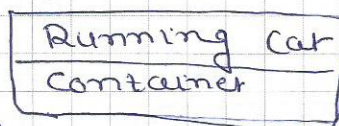 Running Car
Container